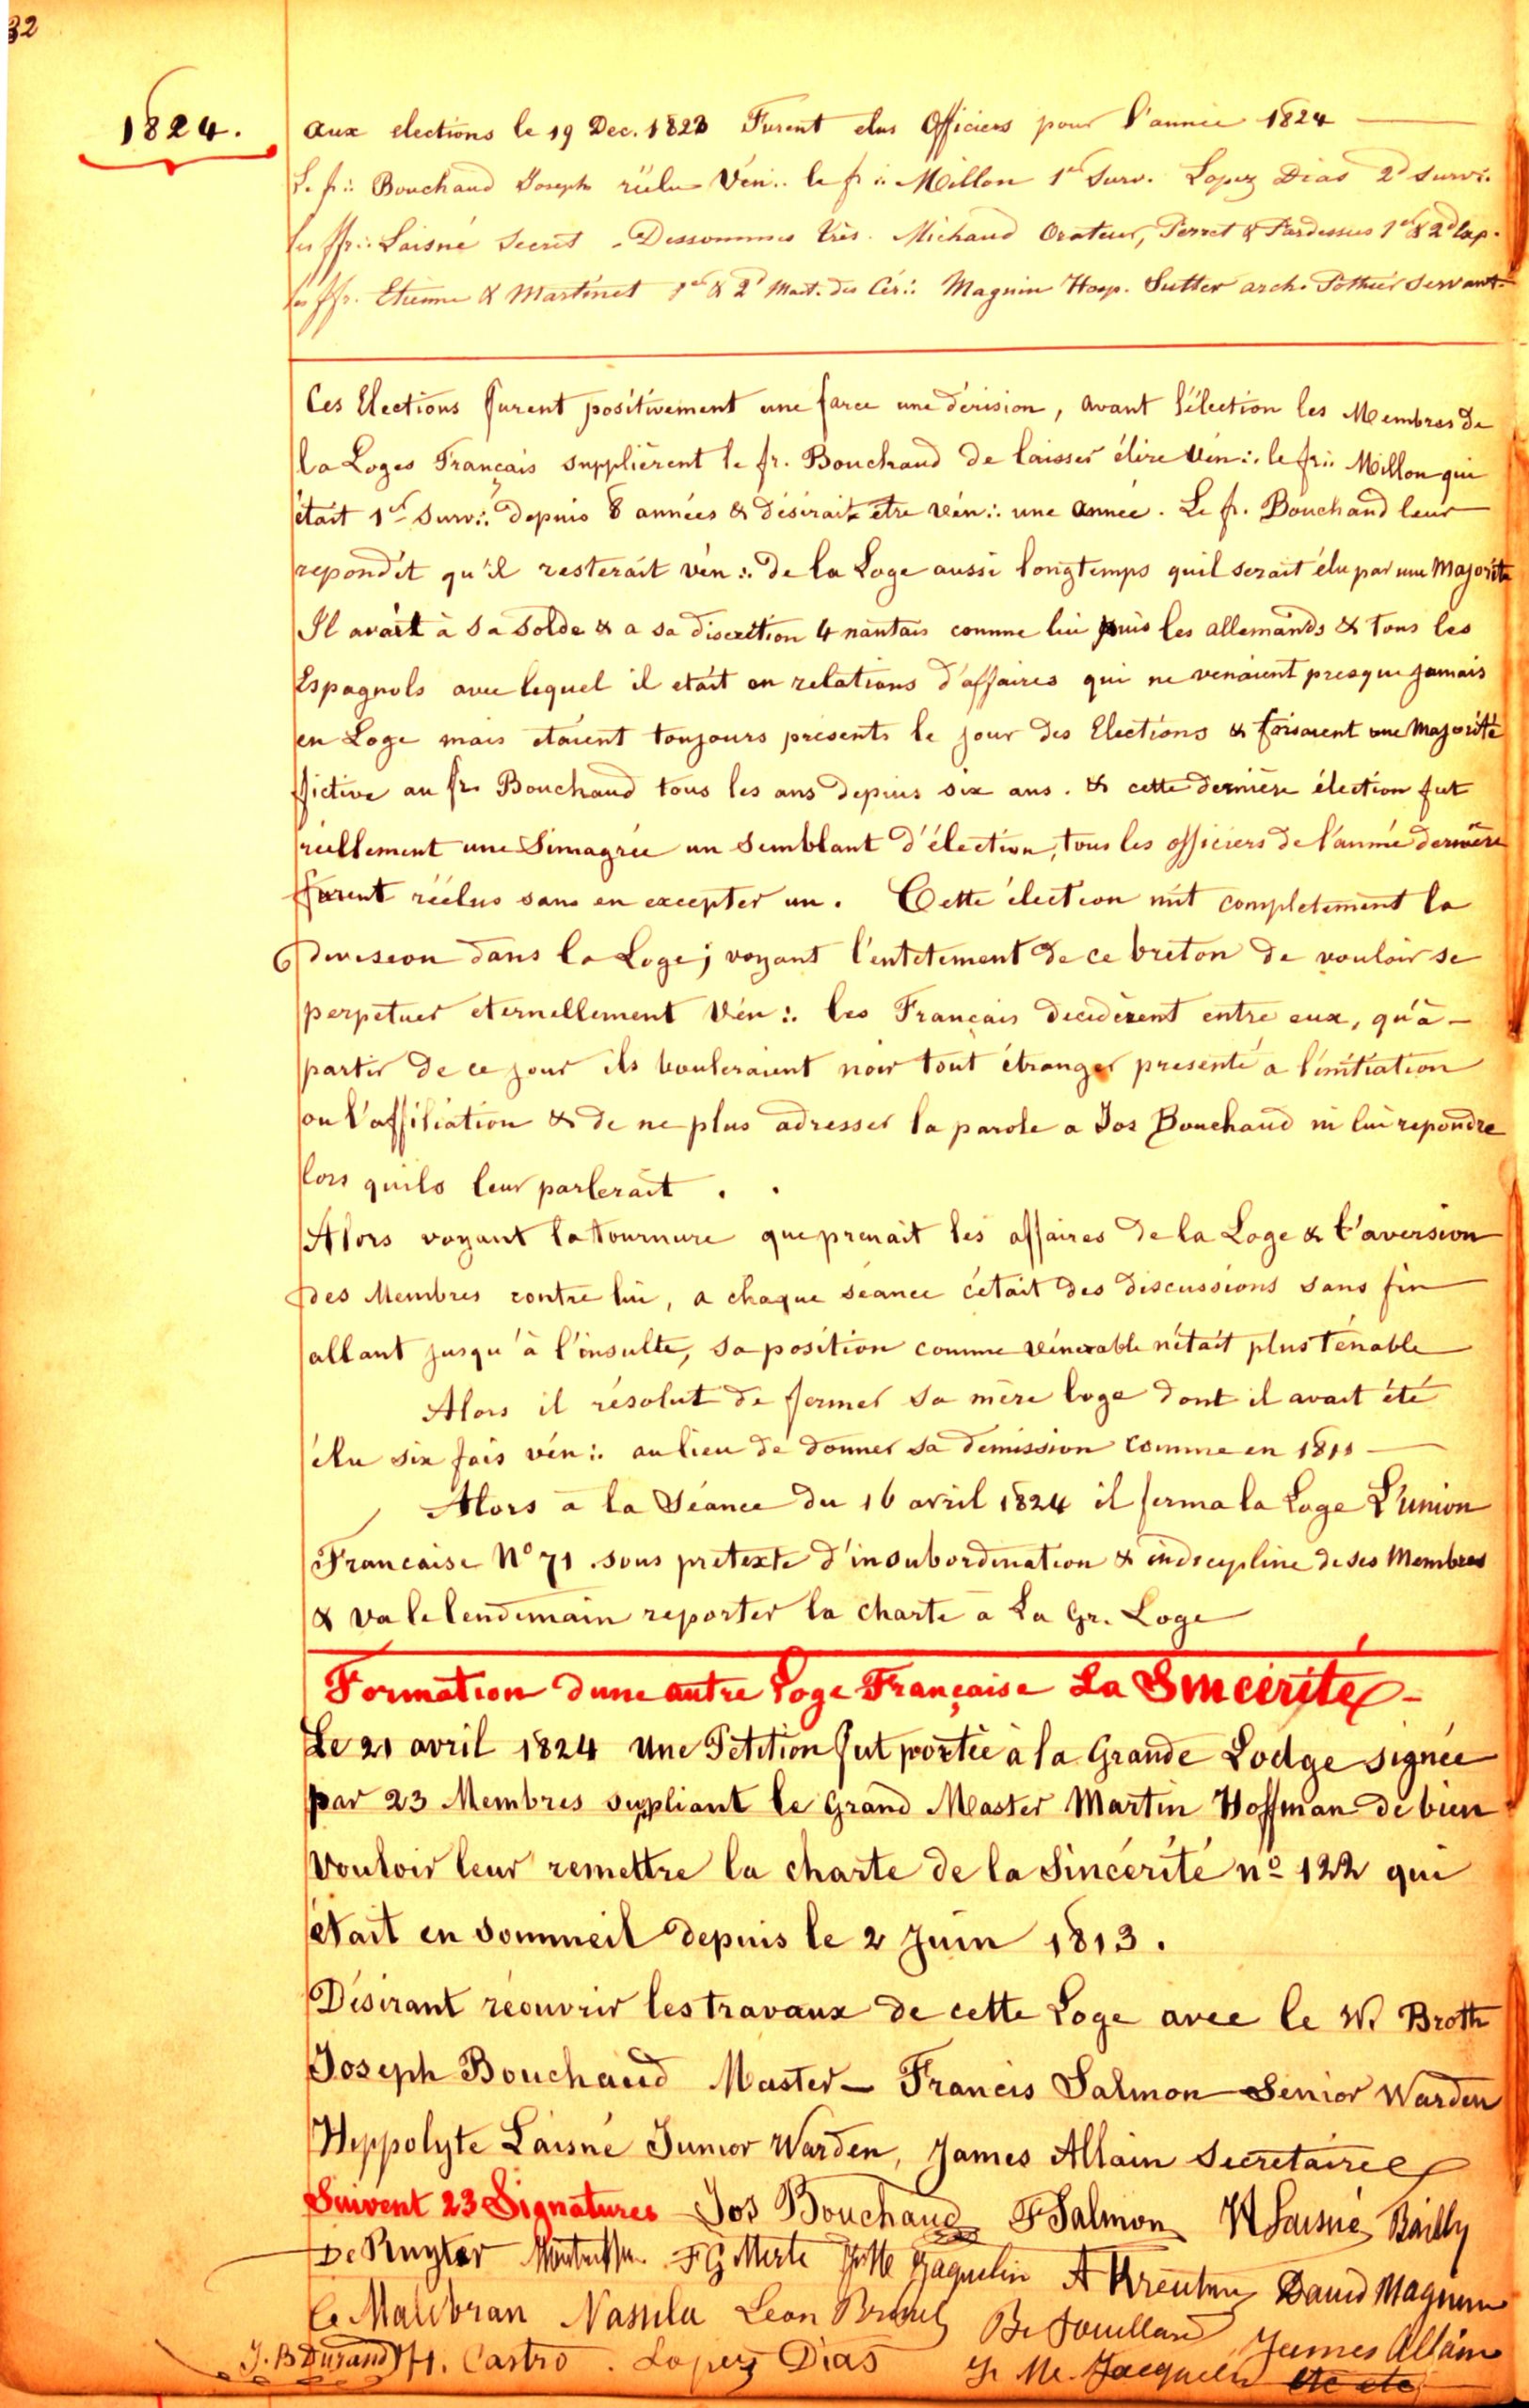 32
1824.
Aux elections le 19 Dec. 1823 Furent elus Officiers pour l'année 1824
Le f∴ Bouchaud Joseph réélu Vén∴ le f∴ Millon 1er Surv. Lopez Dias 2d Surv∴
les ffr∴ Laisné Secret - Dessommes Très. Michaud Orateur, Perret & Pardessus 1er & 2d Exp.
les ffr. Etienne & Martinet 1er & 2d Mait. des Cér∴ Magnin Hosp. Sutter arch. Pothier Servant
Ces Elections furent positivement une farce une dérision, avant l'élection les Membres de
la Loges Français supplièrent le fr. Bouchaud de laisser élire Vén∴ le fr∴ Millon qui
était 1er Surv∴ depuis 8 années & désirait etre Vén∴ une année. Le fr. Bouchaud leur
repondit qu'il resterait vén∴ de la Loge aussi longtemps quil serait élu par une Majorité
Il avait à sa solde & a sa discretion 4 nantais comme lui puis les allemands & tous les
Espagnols avec lequel il etait en relations d'affaires qui ne venaient presque jamais
en Loge mais etaient toujours présents le jour des Elections & faisaient une Majorité
fictive au fr. Bouchaud tous les ans depuis six ans. & cette dernière élection fut
réellement une Simagrée un semblant d'élection, tous les officiers de l'année dernière
furent réélus sans en excepter un. Cette élection mit completement la
division dans la Loge; voyant l'entetement de ce breton de vouloir se
perpetuer eternellement Vén∴ les Français decidèrent entre eux, qu'à-
partir de ce jour ils bouleraient noir tout étranger presenté a l'initiation
ou l'affiliation & de ne plus adresser la parole a Jos Bouchaud ni lui repondre
lors quils leur parlerait . .
Alors voyant la tournure que prenait les affaires de la Loge & l'aversion
des Membres contre lui, a chaque séance c'était des discussions sans fin
allant jusqu'à l'insulte, sa position comme vénérable n'était plus ténable
Alors il résolut de fermer sa mère loge dont il avait été
élu six fois vén∴ au lieu de donner sa demission comme en 1811
Alors a la Séance du 16 avril 1824 il ferma la Loge L'union
Francaise N° 71 sous pretexte d'insubordination & indiscipline de ses Membres
& va le lendemain reporter la charte a La Gr. Loge
Formation dune autre Loge Française La Sincérité -
Le 21 avril 1824 Une Petition fut portée à la Grande Lodge signée
par 23 Membres supliant le Grand Master Martin Hoffman de bien
vouloir leur remettre la charte de la Sincérité n° 122 qui
était en sommeil depuis le 2 Juin 1813.
Désirant réouvrir les travaux de cette Loge avec le W. Broth
Joseph Bouchaud Master - Francis Salmon - Senior Warden
Hyppolyte Laisné Junior Warden, James Allain Secretaire
Suivent 23 Signatures Jos Bouchaud F Salmon H Laisné Bailly
De Ruyter Jaquelin David Magnin
Malibran Leon James Allain
J. B Durand H. Castro . Lopez Dias Jacquelin etc etc